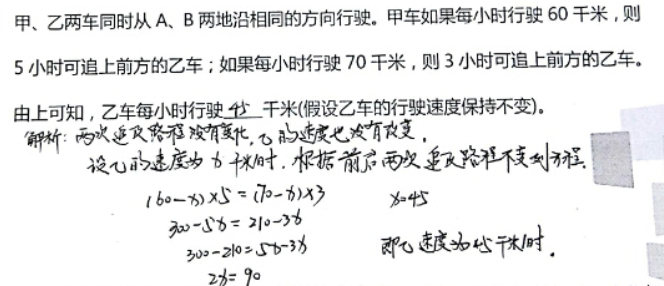 甲、乙两车同时从 A、B 两地沿相同的方向行驶。甲车如果每小时行驶 60 千米，则
5 小时可追上前方的乙车；如果每小时行驶 70 千米，则 3 小时可追上前方的乙车。
由上可知，乙车每小时行驶 45 千米(假设乙车的行驶速度保持不变)。
解析：两次追及路程没有变化，乙的速度也没有改变，
设乙的速度为 x 千米/时，根据前后两次追及路程不变列方程
(60-x)×5=(70-x)×3
x=45
300-5x=210-3x
300-210=5x-3x
即乙速度为45千米/时.
2x=90